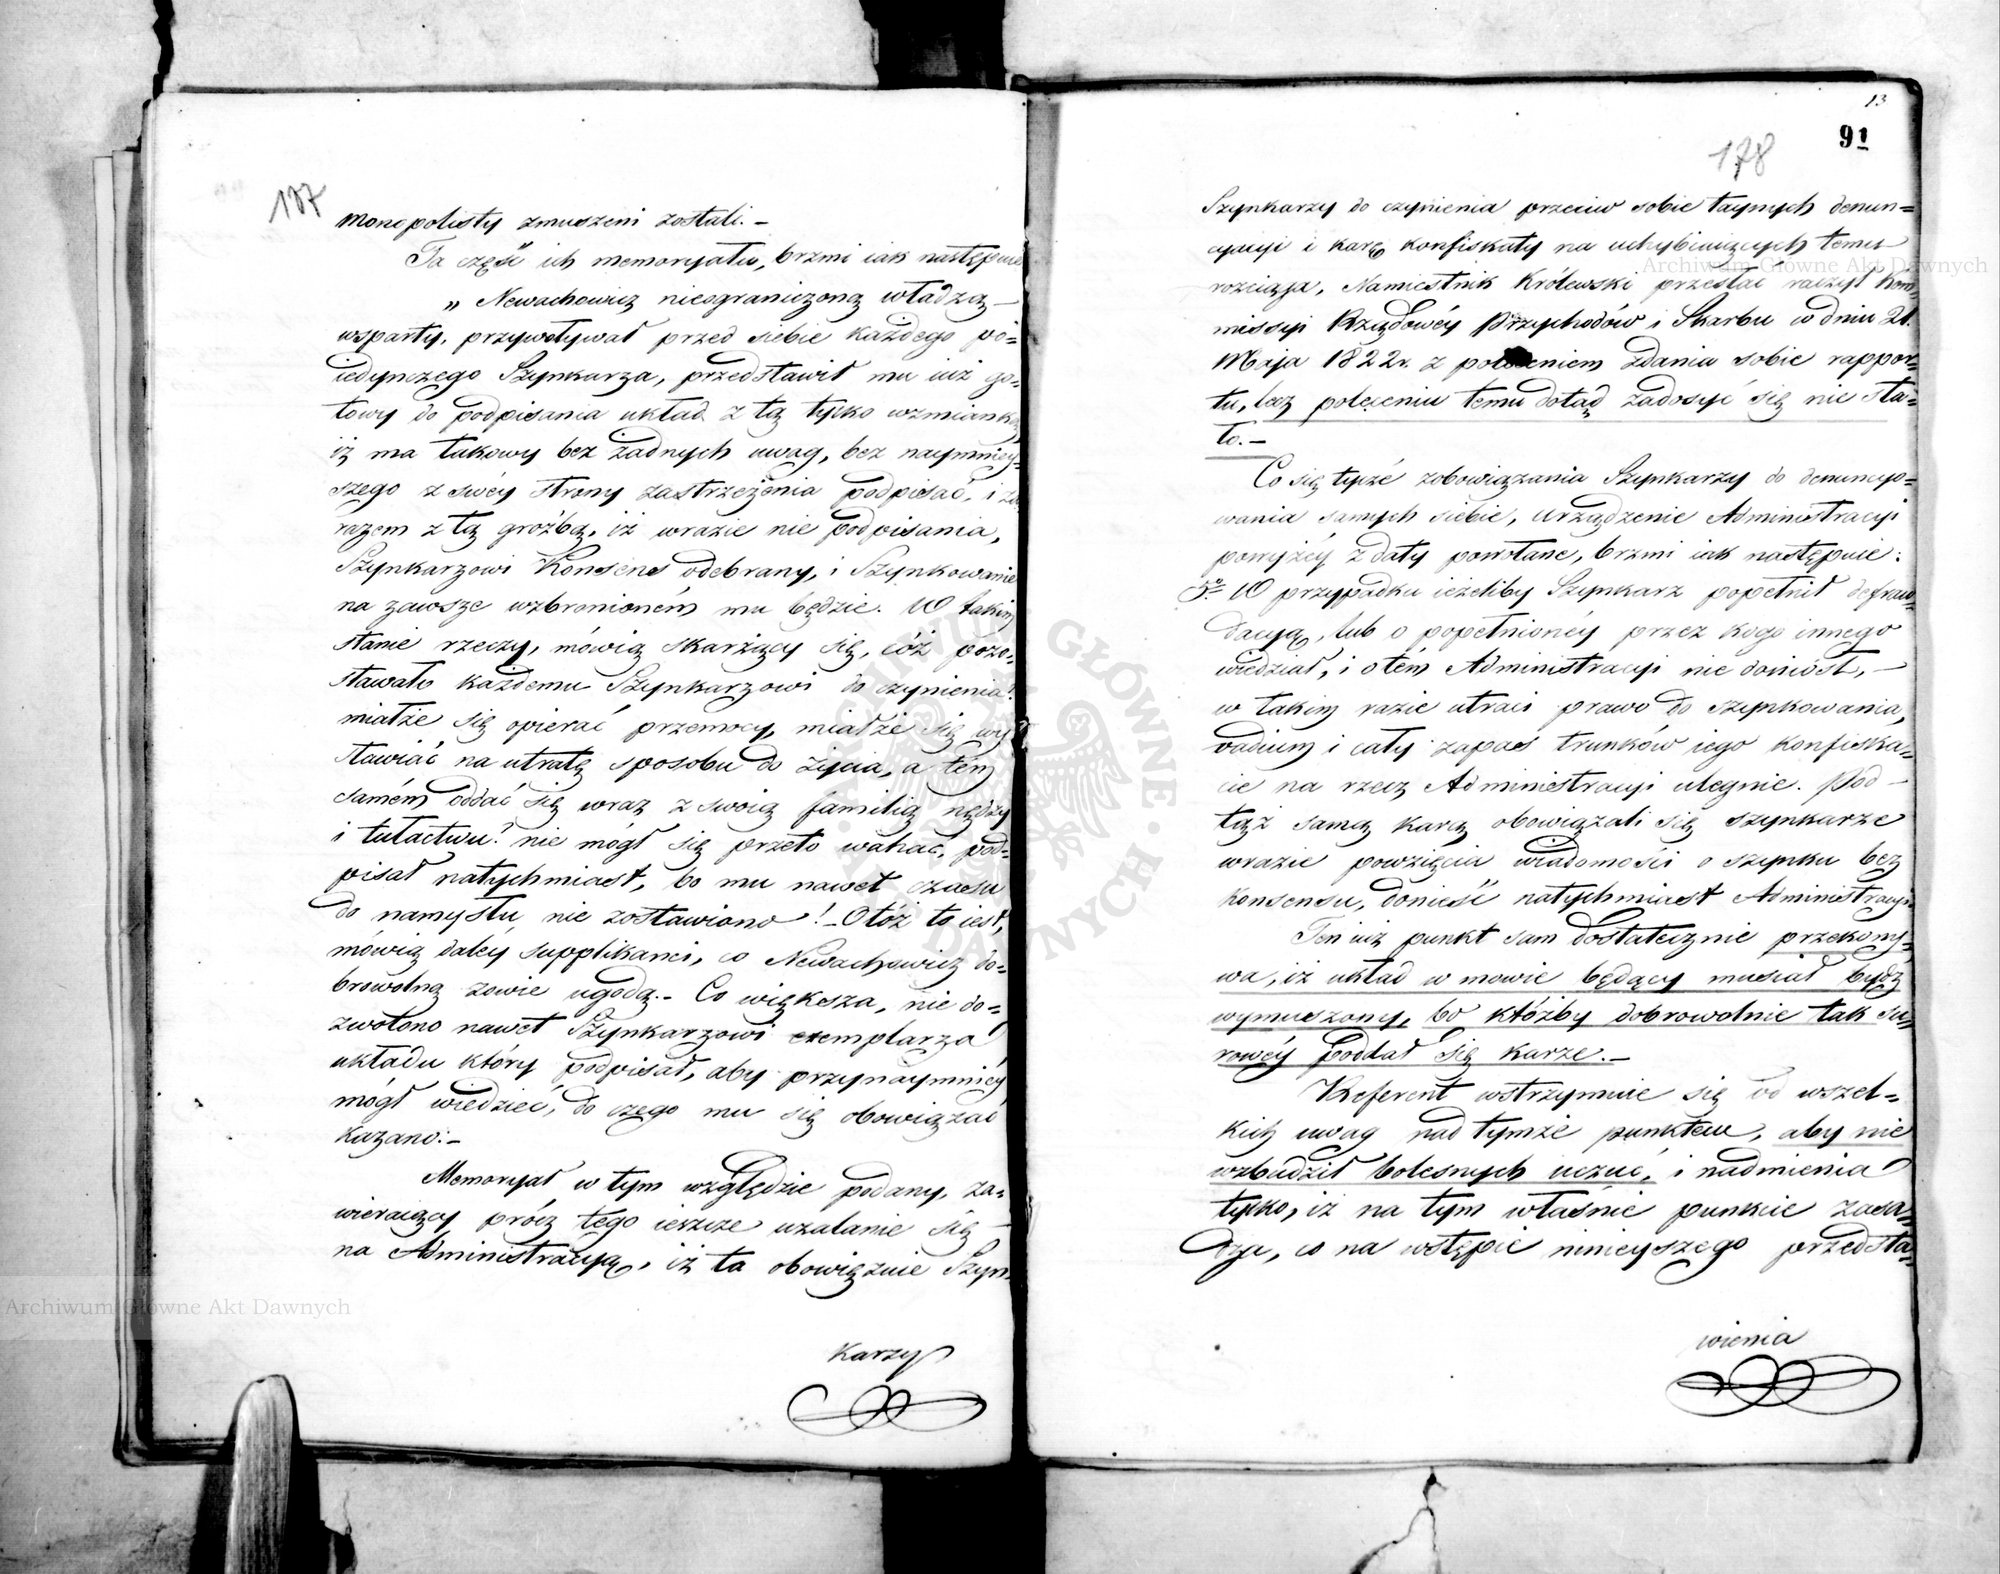 177
monopolisty zmuszeni zostali. –
Ta część ich memoryału, brzmi iak następuie
„ Newachowicz nieograniczoną władzą –
wsparty, przywoływał przed siebie każdego po=
iedynczego Szynkarza, przedstawił mu iuż go=
towy do podpisania układ z tą tylko wzmianką
iż ma takowy bez żadnych uwag, bez naymniey=
szego z swéy strony zastrzeżenia podpisać, i za=
razem z tą groźbą, iż wrazie nie podpisania,
Szynkarzowi Konsens odebrany, i Szynkowanie
na zawsze wzbronioném mu będzie. W takim
stanie rzeczy, mówią skarżący się, cóż pozo=
stawało każdemu Szynkarzowi do czynienia?
miałże się opierać przemocy, miałże się wy
stawiać na utratę sposobu do życia, a tém
samém oddać się wraz z swoią familią nędzy
i tułactwu? nie mógł się przeto wahać, pod=
pisał natychmiast, bo mu nawet czasu
do namysłu nie zostawiono! – Otóż to iest,
mówią daley supplikanci, co Newachowicz do=
browolną zowie ugodą. – Co większa, nie do=
zwolono nawet Szynkarzowi exemplarza
układu który podpisał, aby przynaymniéy
mógł wiedzieć, do czego mu się obowiązać
kazano: –
Memoryał w tym względzie podany, za=
wieraiący prócz tego ieszcze użalanie się –
na Administracyą, iż ta obowiązuie Szyn=
karzy
13
91
178
Szynkarzy do czynienia przeciw sobie taynych denun=
cyacyi i karę konfiskaty na uchybiaiących temu
rozciąga, Namiestnik Królewski przesłać raczył Kom=
missyi Rządowéy Przychodów i Skarbu w dniu 21.
Maja 1822 r. z poleceniem zdania sobie rappor=
tu, lecz poleceniu temu dotąd zadosyć się nie sta=
ło. –
Co się tyczé zobowiązania Szynkarzy do denuncyo=
wania samych siebie, urządzenie Administracyi
powyżéy z daty powołane, brzmi iak następuie:
5º W przypadku ieżeliby Szynkarz popełnił defrau=
dacyą, lub o popełnionéy przez kogo innego
wiedział, i o tém Administracyi nie doniosł, –
w takim razie utraci prawo do szynkowania,
vadium i cały zapas trunków iego konfiska=
cie na rzecz Administracyi ulegnie. Pod –
tąż samą karą obowiązali się szynkarze
wrazie powzięcia wiadomości o szynku bez
konsensu, donieść natychmiast Administracyi.
Ten iuż punkt sam dostatecznie przekony=
wa, iż układ w mowie będący musiał bydź
wymuszony, bo któżby dobrowolnie tak su=
rowéy poddał się karze. –
Referent wstrzymuie się od wszel=
kich uwag nad tymże punktem, aby nie
wzbudził bolesnych uczuć, i nadmienia
tylko, iż na tym właśnie punkcie zasa=
dza, co na wstępie ninieyszego przedsta=
wienia
Archiwum Główne Akt Dawnych
Archiwum Główne Akt Dawnych
ARCHIWUM GŁÓWNE AKT DAWNYCH